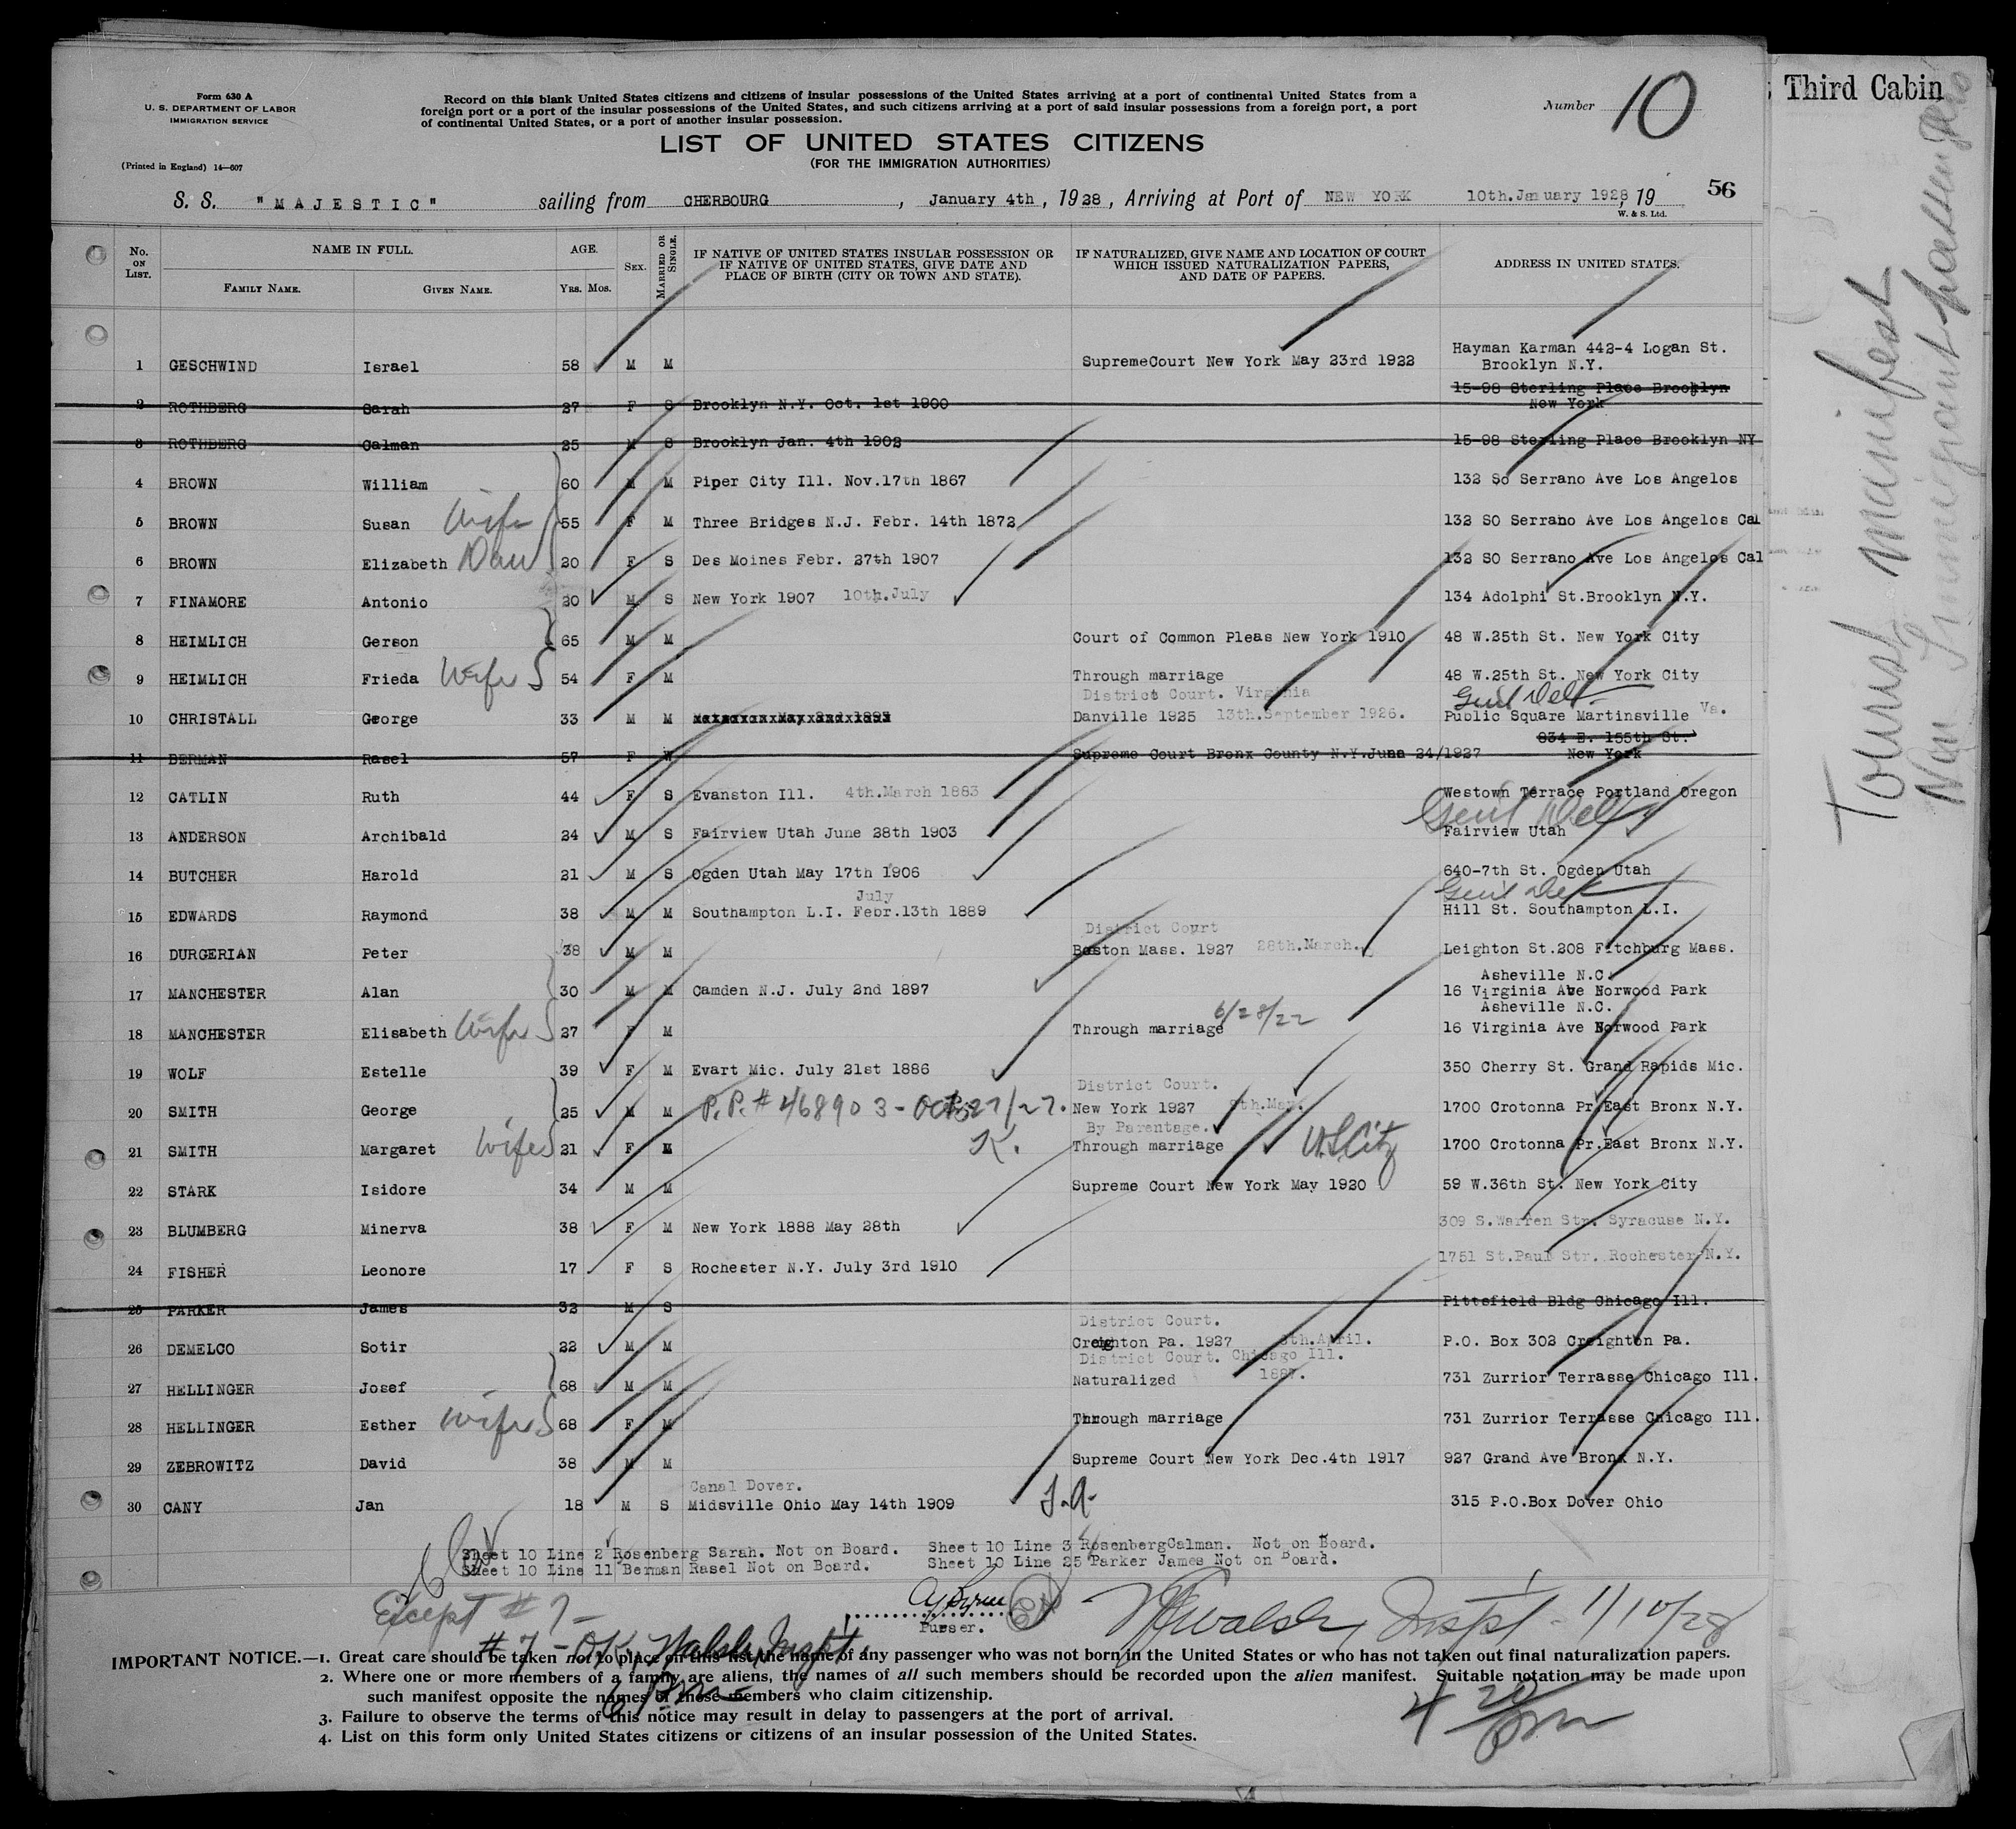 Form 630 A
U. S. DEPARTMENT OF LABOR
IMMIGRATION SERVICE
(Printed in England) 14—607
Record on this blank United States citizens and citizens of insular possessions of the United States arriving at a port of continental United States from a
foreign port or a port of the insular possessions of the United States, and such citizens arriving at a port of said insular possessions from a foreign port, a port
of continental United States, or a port of another insular possession.
Number 10
LIST OF UNITED STATES CITIZENS
(FOR THE IMMIGRATION AUTHORITIES)
S. S. "MAJESTIC" sailing from CHERBOURG, January 4th, 1928, Arriving at Port of NEW YORK 10th.January 1928, 19
56
W. & S. Ltd.
No. ON LIST. NAME IN FULL. FAMILY NAME. GIVEN NAME. AGE. YRS. MOS. SEX. MARRIED OR SINGLE.
IF NATIVE OF UNITED STATES INSULAR POSSESSION OR IF NATIVE OF UNITED STATES, GIVE DATE AND PLACE OF BIRTH (CITY OR TOWN AND STATE).
IF NATURALIZED, GIVE NAME AND LOCATION OF COURT WHICH ISSUED NATURALIZATION PAPERS, AND DATE OF PAPERS.
ADDRESS IN UNITED STATES.
Hayman Karman 442-4 Logan St.
1 GESCHWIND Israel 58 M M SupremeCourt New York May 23rd 1922 Brooklyn N.Y.
15-98 Sterling Place Brooklyn
2 ROTHBERG Sarah 27 F S Brooklyn N.Y. Oct. 1st 1900 New York
3 ROTHBERG Calman 25 M S Brooklyn Jan. 4th 1902 15-98 Sterling Place Brooklyn NY
4 BROWN William 60 M M Piper City Ill. Nov.17th 1867 132 So Serrano Ave Los Angelos
5 BROWN Susan Wife 55 F M Three Bridges N.J. Febr. 14th 1872 132 SO Serrano Ave Los Angelos Cal
6 BROWN Elizabeth Dau 20 F S Des Moines Febr. 27th 1907 132 SO Serrano Ave Los Angelos Cal
7 FINAMORE Antonio 20 M S New York 1907 10th.July 134 Adolphi St.Brooklyn N.Y.
8 HEIMLICH Gerson 65 M M Court of Common Pleas New York 1910 48 W.25th St. New York City
9 HEIMLICH Frieda Wife 54 F M Through marriage 48 W.25th St. New York City
District Court. Virginia
10 CHRISTALL George 33 M M Danville 1925 13th.September 1926. Public Square Martinsville Va.
834 E. 155th St.
11 BERMAN Rasel 57 F W Supreme Court Bronx County N.Y.June 24/1927 New York
12 CATLIN Ruth 44 F S Evanston Ill. 4th.March 1883 Westown Terrace Portland Oregon
13 ANDERSON Archibald 24 M S Fairview Utah June 28th 1903 Fairview Utah
14 BUTCHER Harold 21 M S Ogden Utah May 17th 1906 640-7th St. Ogden Utah
July
15 EDWARDS Raymond 38 M M Southampton L.I. Febr.13th 1889 Hill St. Southampton L.I.
District Court
16 DURGERIAN Peter 38 M M Boston Mass. 1927 28th.March. Leighton St.208 Fitchburg Mass.
Asheville N.C.
17 MANCHESTER Alan 30 M M Camden N.J. July 2nd 1897 16 Virginia Ave Norwood Park
6/28/22 Asheville N.C.
18 MANCHESTER Elisabeth Wife 27 F M Through marriage 16 Virginia Ave Norwood Park
19 WOLF Estelle 39 F M Evart Mic. July 21st 1886 350 Cherry St. Grand Rapids Mic.
District Court.
20 SMITH George 25 M M P.P. # 468903 - Oct 27/27. New York 1927 9th.May. 1700 Crotonna Pr.East Bronx N.Y.
By Parentage.
21 SMITH Margaret Wife 21 F M K. Through marriage U.S.Citz 1700 Crotonna Pr.East Bronx N.Y.
22 STARK Isidore 34 M M Supreme Court New York May 1920 59 W.36th St. New York City
23 BLUMBERG Minerva 38 F M New York 1888 May 28th 309 S.Warren Str. Syracuse N.Y.
24 FISHER Leonore 17 F S Rochester N.Y. July 3rd 1910 1751 St.Paul Str. Rochester N.Y.
25 PARKER James 32 M S Pittsfield Bldg Chicago Ill.
District Court.
26 DEMELCO Sotir 22 M M Creighton Pa. 1927 8th.April. P.O. Box 302 Creighton Pa.
District Court. Chicago Ill.
27 HELLINGER Josef 68 M M Naturalized 1887. 731 Zurrior Terrasse Chicago Ill.
28 HELLINGER Esther Wife 68 F M Through marriage 731 Zurrior Terrasse Chicago Ill.
29 ZEBROWITZ David 38 M M Supreme Court New York Dec.4th 1917 927 Grand Ave Bronx N.Y.
Canal Dover.
30 CANY Jan 18 M S Midsville Ohio May 14th 1909 315 P.O.Box Dover Ohio
Sheet 10 Line 2 Rosenberg Sarah. Not on Board. Sheet 10 Line 3 RosenbergCalman. Not on Board.
Sheet 10 Line 11 Berman Rasel Not on Board. Sheet 10 Line 25 Parker James Not on Board.
Except # 7 -
Purser.
Walsh, Inspt - 1/10/28
# 7 - OK, Walsh, Inspt.
IMPORTANT NOTICE.—1. Great care should be taken not to place on this list the name of any passenger who was not born in the United States or who has not taken out final naturalization papers.
2. Where one or more members of a family are aliens, the names of all such members should be recorded upon the alien manifest. Suitable notation may be made upon
such manifest opposite the names of those members who claim citizenship.
3. Failure to observe the terms of this notice may result in delay to passengers at the port of arrival.
4. List on this form only United States citizens or citizens of an insular possession of the United States.
4 20 pm
Third Cabin
Tourist Manifest
Non Immigrant passengers